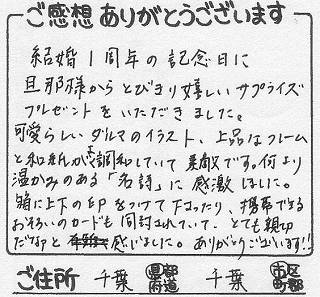 ご感想 ありがとうございます
結婚1周年の記念日に
旦那様からとびきり嬉しいサプライズ
プレゼントをいただきました。
可愛らしいダルマのイラスト、上品なフレーム
と和紙が調和していて素敵です。何より
温かみのある「名詩」に感激しました。
箱に上下の印をつけて下さったり、携帯できる
おそろいのカードも同封されていて、とても親切
だなと感じました。ありがとうございます!!
ご住所 千葉 都道府県 千葉 市区町郡